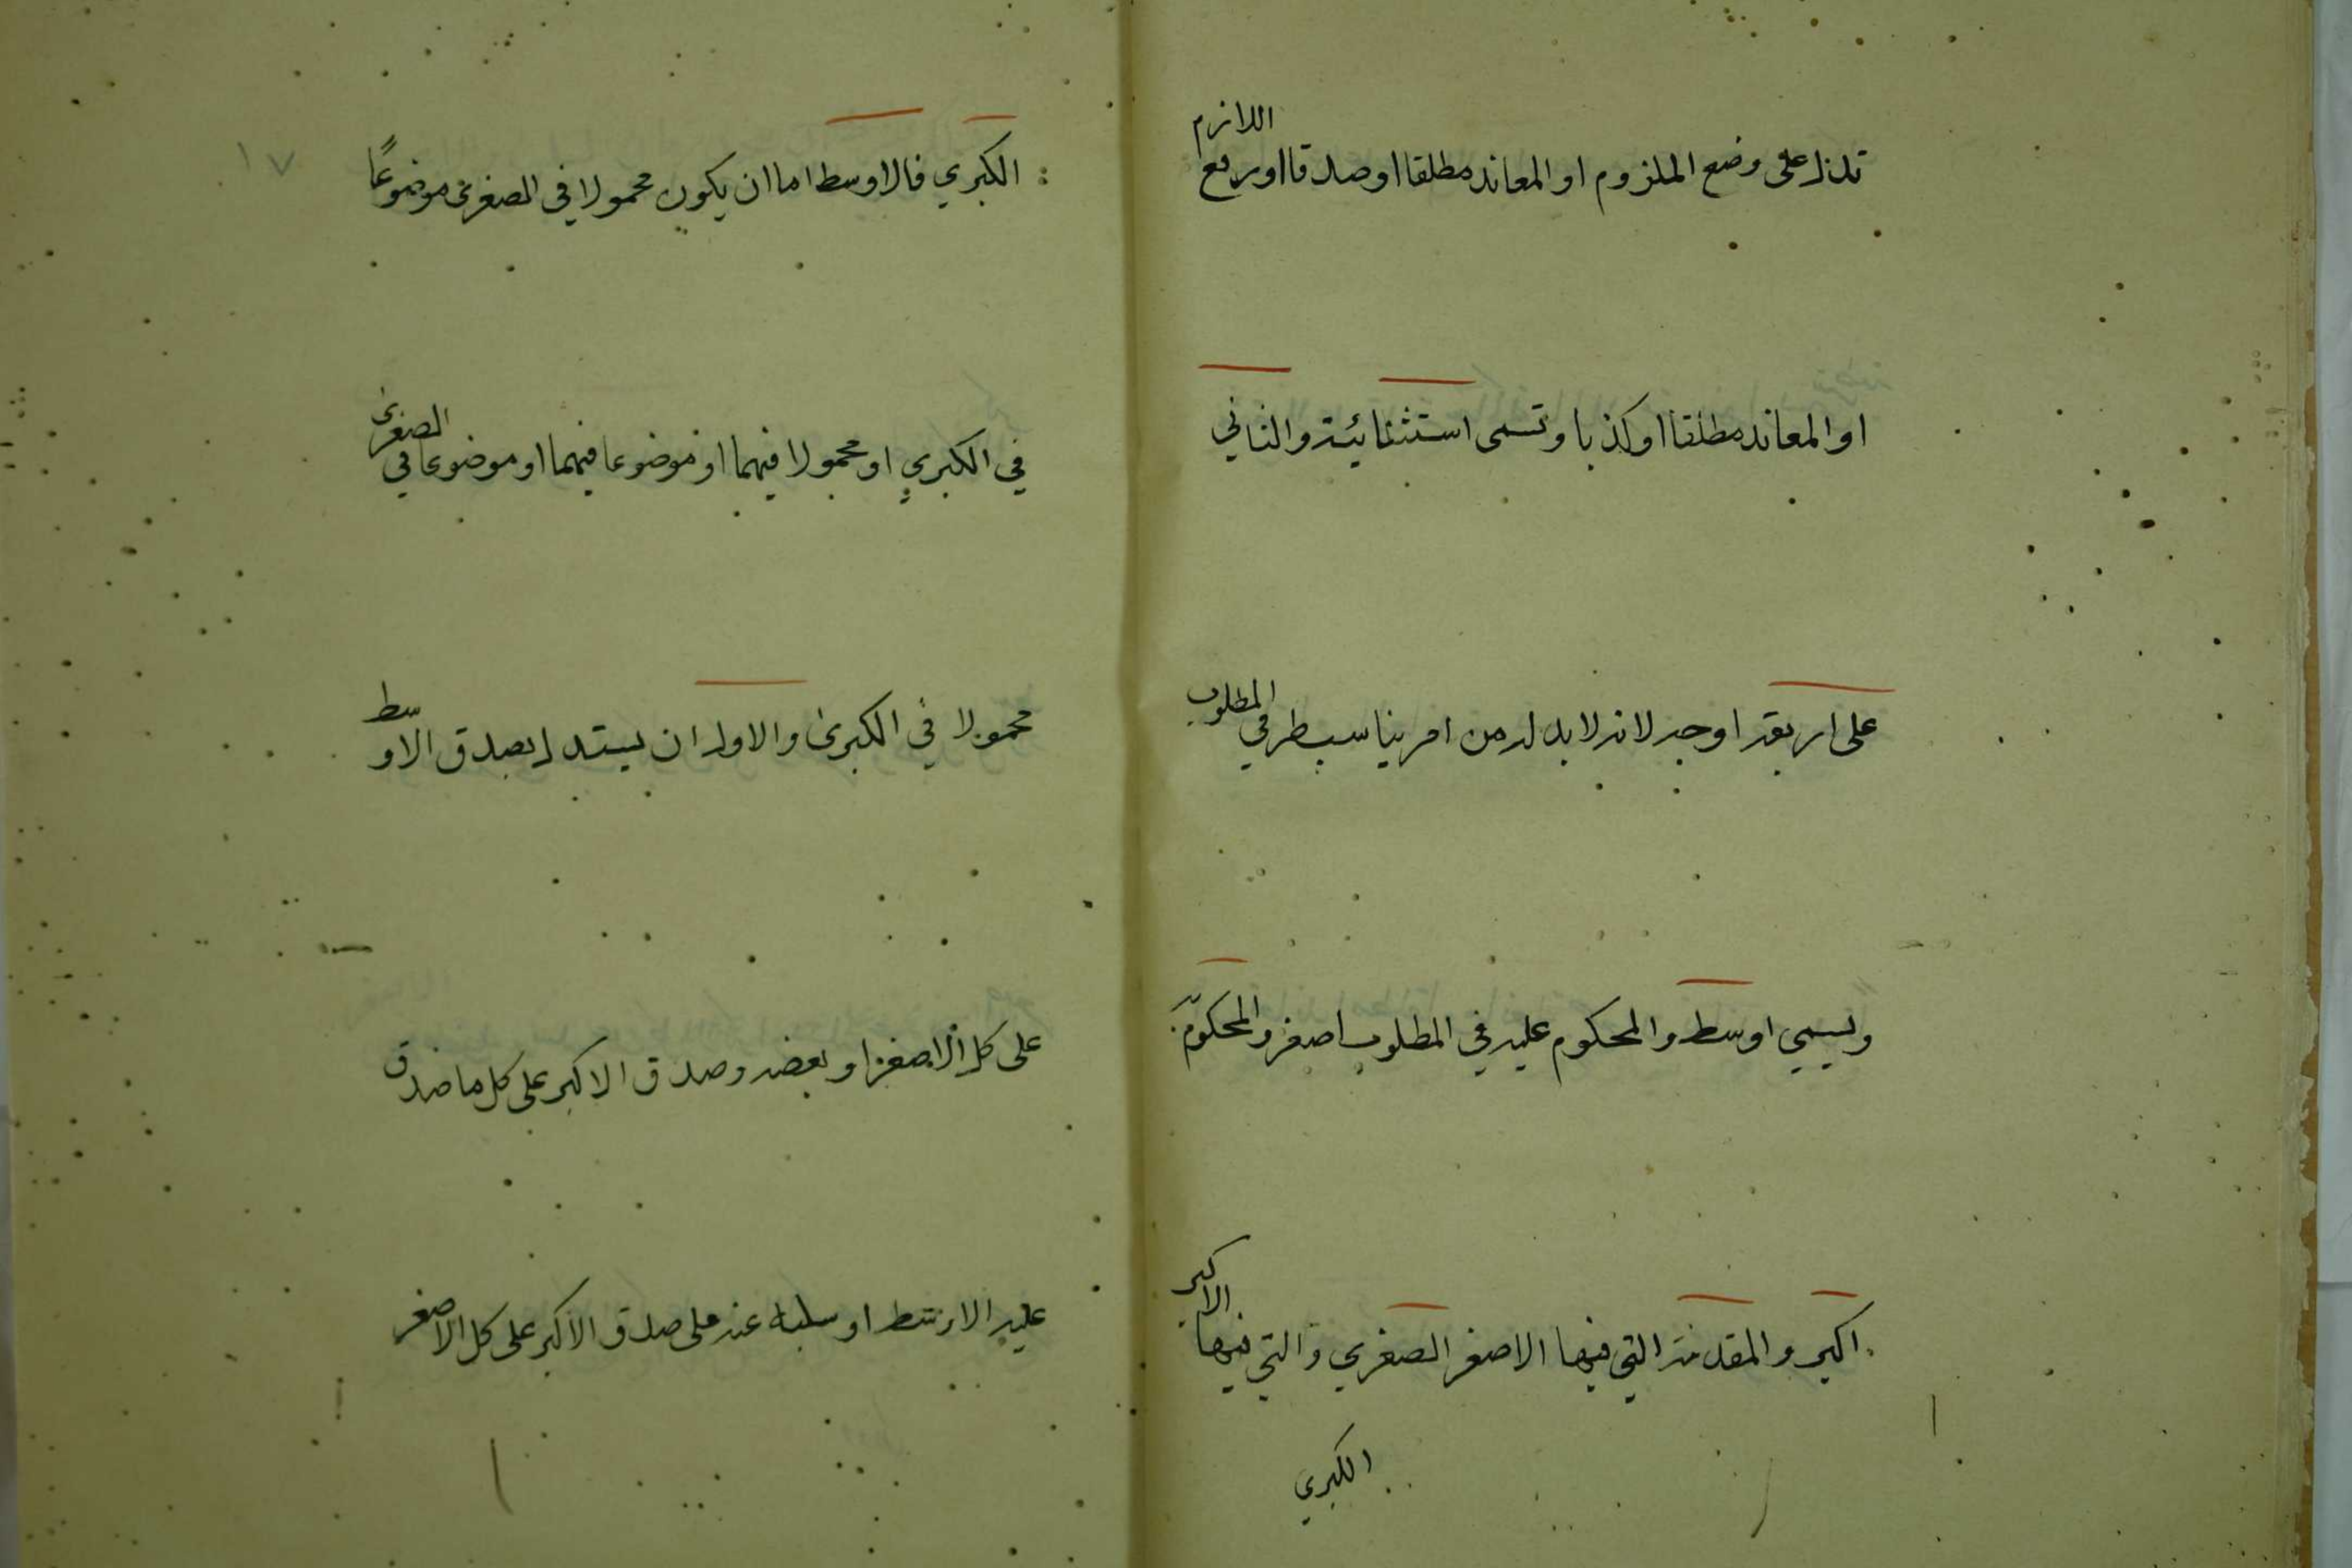 تدل على وضع الملزوم او المعاند مطلقا او صدقا او رفع اللازم
او المعاند مطلقا او كذبا وتسمى استثنائية والثاني
على اربعة اوجه لانه لا بد له من امر يناسب طرفي المطلوب
ويسمي اوسط والمحكوم عليه في المطلوب اصغر والمحكوم به
اكبر والمقدمة التي فيها الاصغر الصغري والتي فيها الاكبر
الكبري
١٧
الكبري فالاوسط اما ان يكون محمولا في الصغرى موضوعًا
في الكبري او محمولا فيهما او موضوعا فيهما او موضوعا في الصغرى
محمولا في الكبرى والاول ان يستدل بصدق الاوسط
على كل الاصغر او بعضه وصدق الاكبر على كل ما صدق
عليه الاوسط او سلبه عنه على صدق الاكبر على كل الاصغر